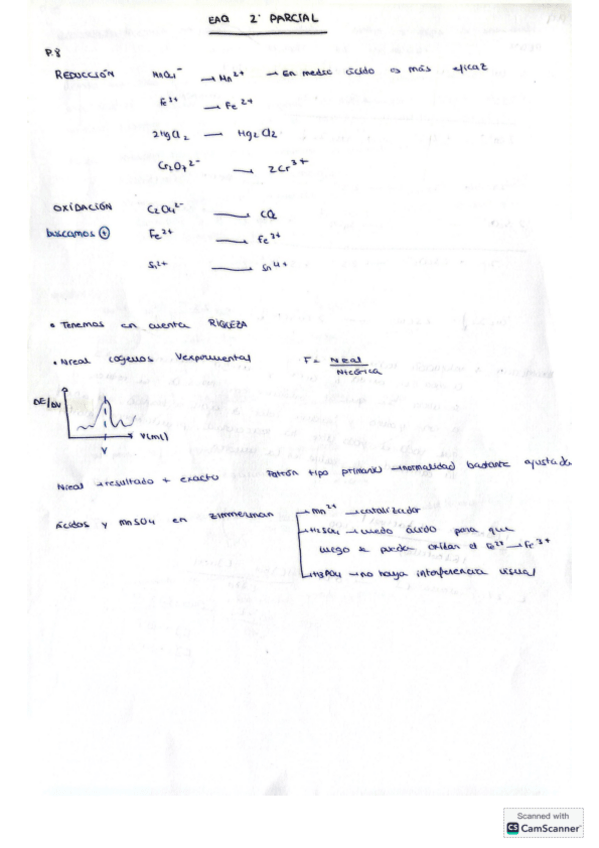 EAQ 2º PARCIAL
P.8
REDUCCIÓN MnO4⁻ → Mn²⁺ → En medio ácido es más eficaz
Fe³⁺ → Fe²⁺
2HgCl2 — Hg2Cl2
Cr2O7²⁻ → 2Cr³⁺
OXIDACIÓN C2O4²⁻ → CO2
buscamos ⊕ Fe²⁺ → Fe³⁺
Sn²⁺ → Sn⁴⁺
• Tenemos en cuenta RIQUEZA
• Nreal cogemos Vexperimental F = Nreal / Nteórica
ΔE/ΔV
V(mL)
V
Nreal → resultado + exacto Patrón tipo primario → normalidad bastante ajustada
Ácidos y MnSO4 en Zimmerman
→ Mn²⁺ → catalizador
→ H2SO4 → medio ácido para que
luego se pueda oxidar el Fe²⁺ → Fe³⁺
→ H3PO4 → no haya interferencia visual
Scanned with
CS CamScanner